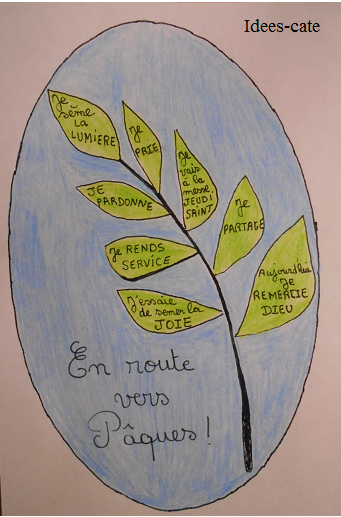 Idees-cate
Je
sème
LA
LUMIERE
Je
PRIE
Je
vais
à la
messe
JEUDI
SAINT
JE
PARDONNE
Je
PARTAGE
Je RENDS
SERVICE
Aujourd'hui
Je
REMERCIE
DIEU
J'essaie
de semer la
JOIE
En route
vers
Pâques !